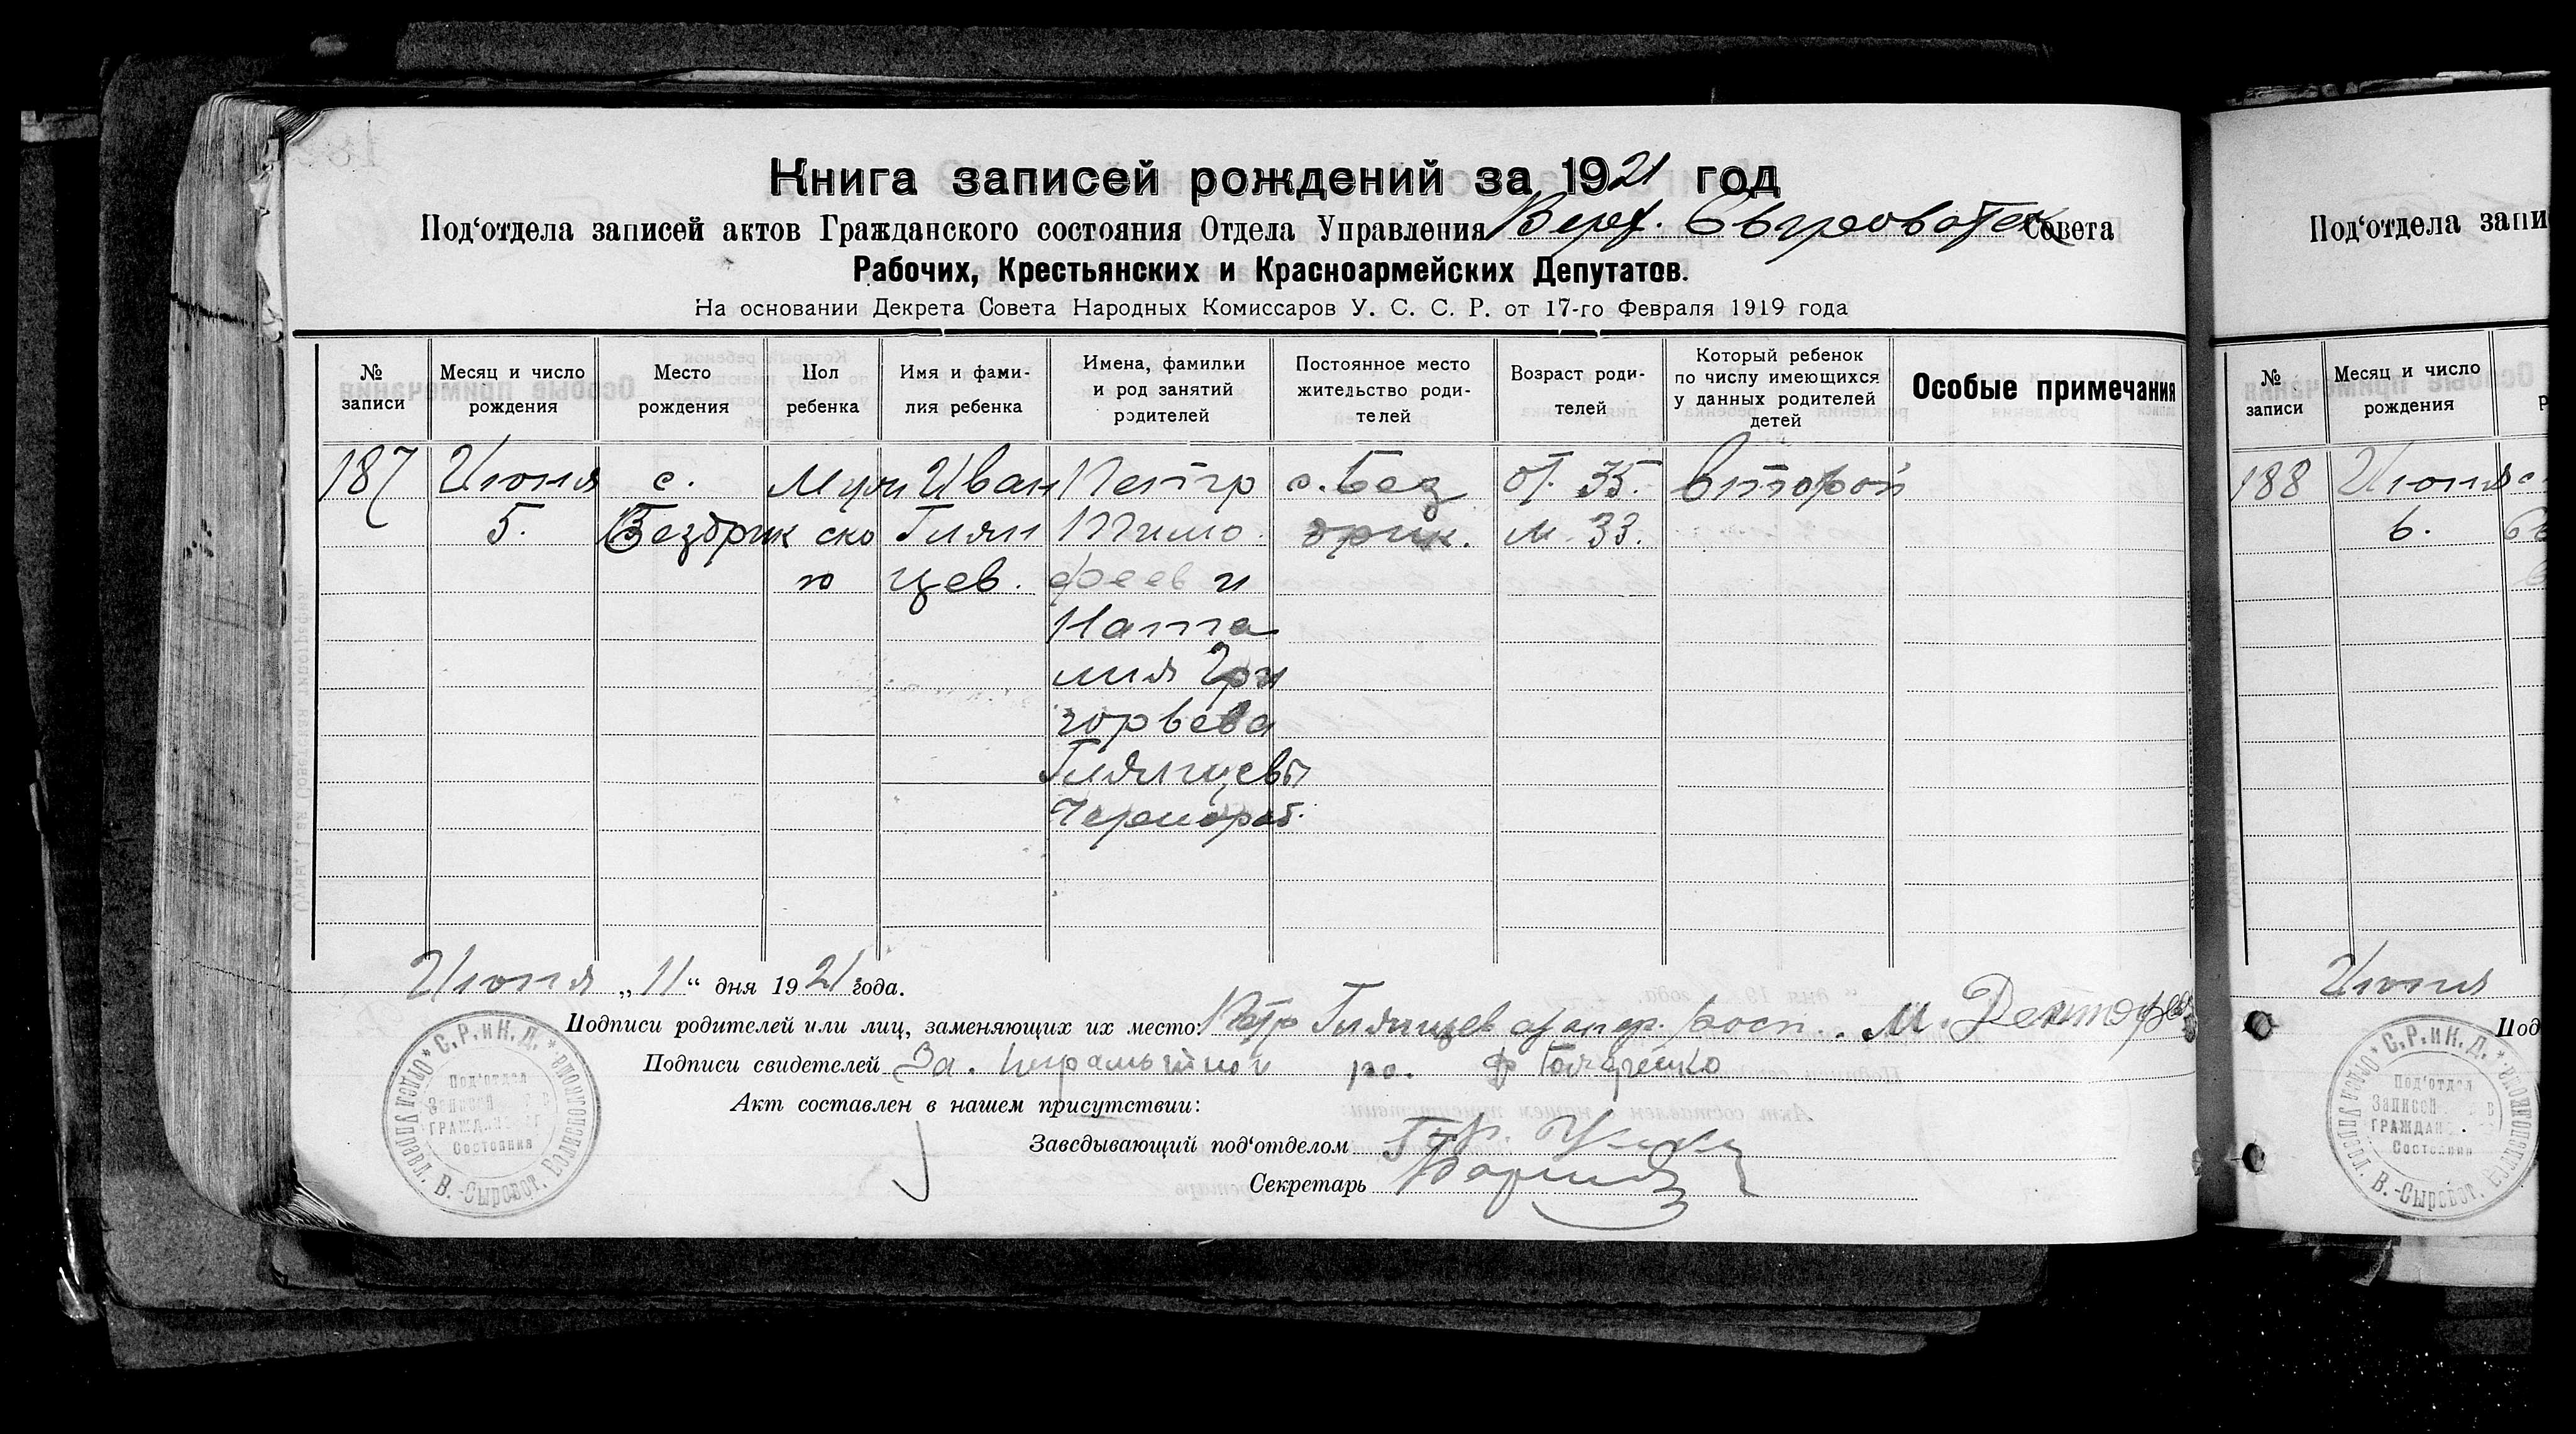 Книга записей рождений за 1921 год
Под‘отдела записей актов Гражданского состояния Отдела Управления Верх. Сыроватск Совета
Рабочих, Крестьянских и Красноармейских Депутатов.
На основании Декрета Совета Народных Комиссаров У. С. С. Р. от 17-го Февраля 1919 года
№ записи
Месяц и число рождения
Место рождения
Пол ребенка
Имя и фами-
лия ребенка
Имена, фамилки
и род занятий
родителей
Постоянное место
жительство роди-
телей
Возраст роди-
телей
Который ребенок
по числу имеющихся
у данных родителей
детей
Особые примечания
187
Июня
5.
с.
Бездрик
Муж
ско
ю
Иван
Глян
цев.
Петр
Тимо
феев и
Ната
лия Гри
горьева
Глянцевы
Чернораб.
с. Без
дрик.
от. 35.
м. 33.
второй
Июня „11“ дня 1921 года.
Подписи родителей или лиц, заменяющих их место: Петр Глянцев
Подписи свидетелей За
Акт составлен в нашем присутствии:
Заведывающий под‘отделом
Секретарь
* С.Р.иК.Д. *
Отдел Управл. В.-Сыровот.
Под‘отдел
ГРАЖДАН
Состояния
Под‘отдела запи
№ записи
Месяц и число рождения
188
Июня
6.
с.
Июня
Под
* С.Р.иК.Д. *
Отдел Управл. В.-Сыровот.
Под‘отдел
Записей
ГРАЖДАН
Состояния